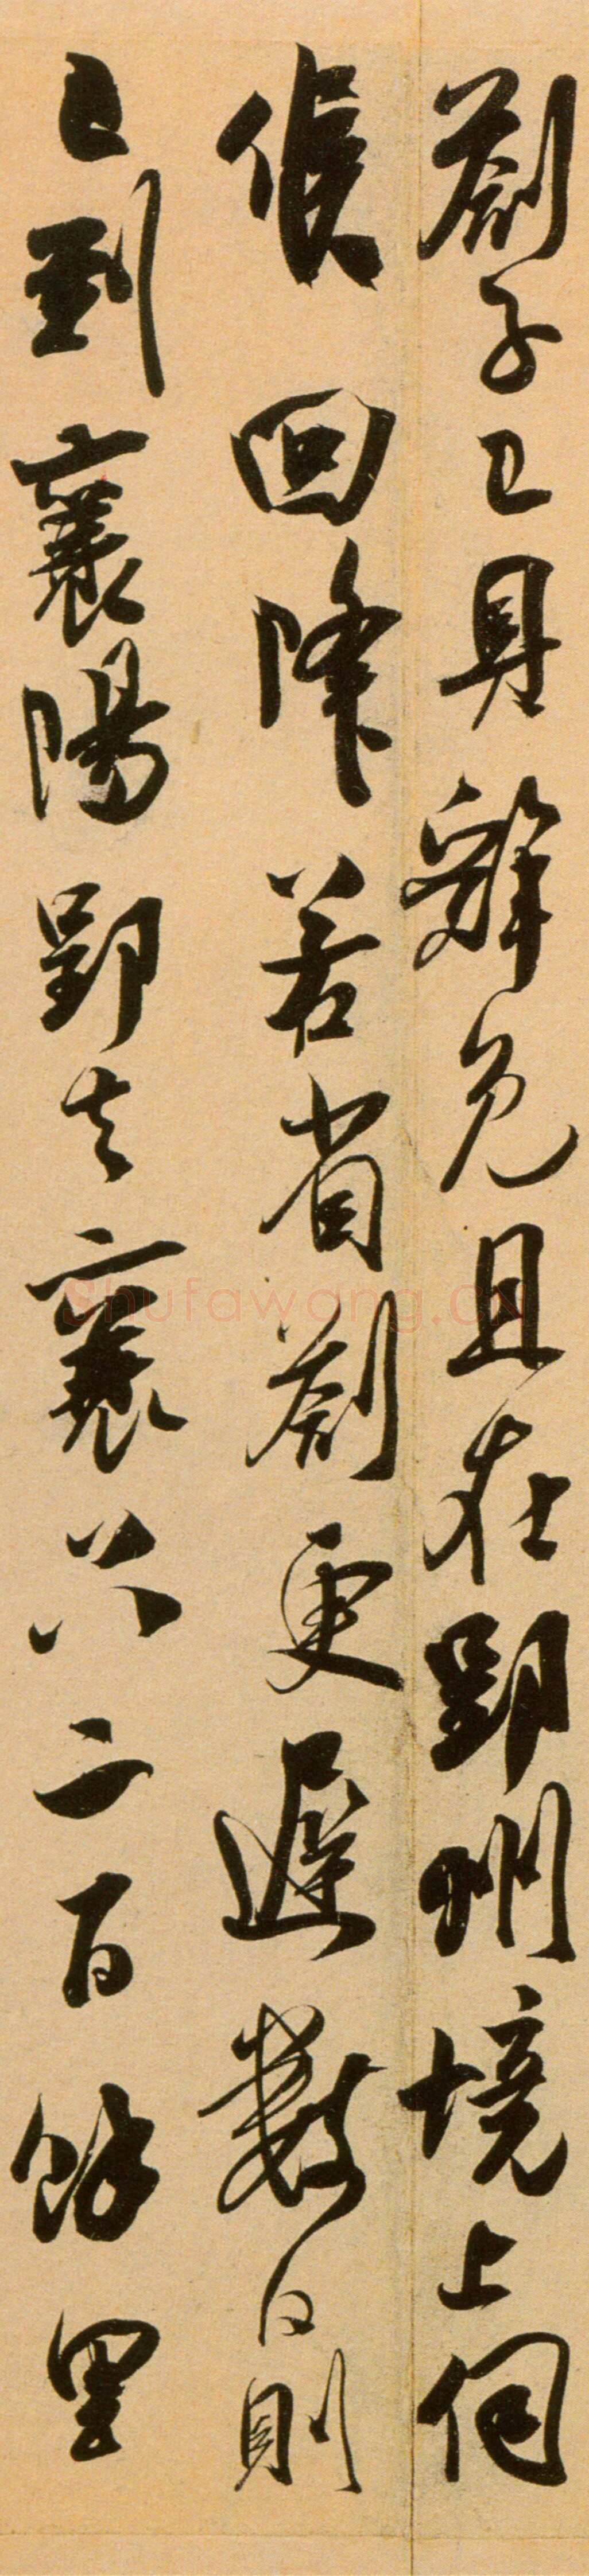 劄子已具辭免且在郢州境上伺
候回降若省劄更遲數日則
已到襄陽郢去襄只二百餘里
shufawang.cn